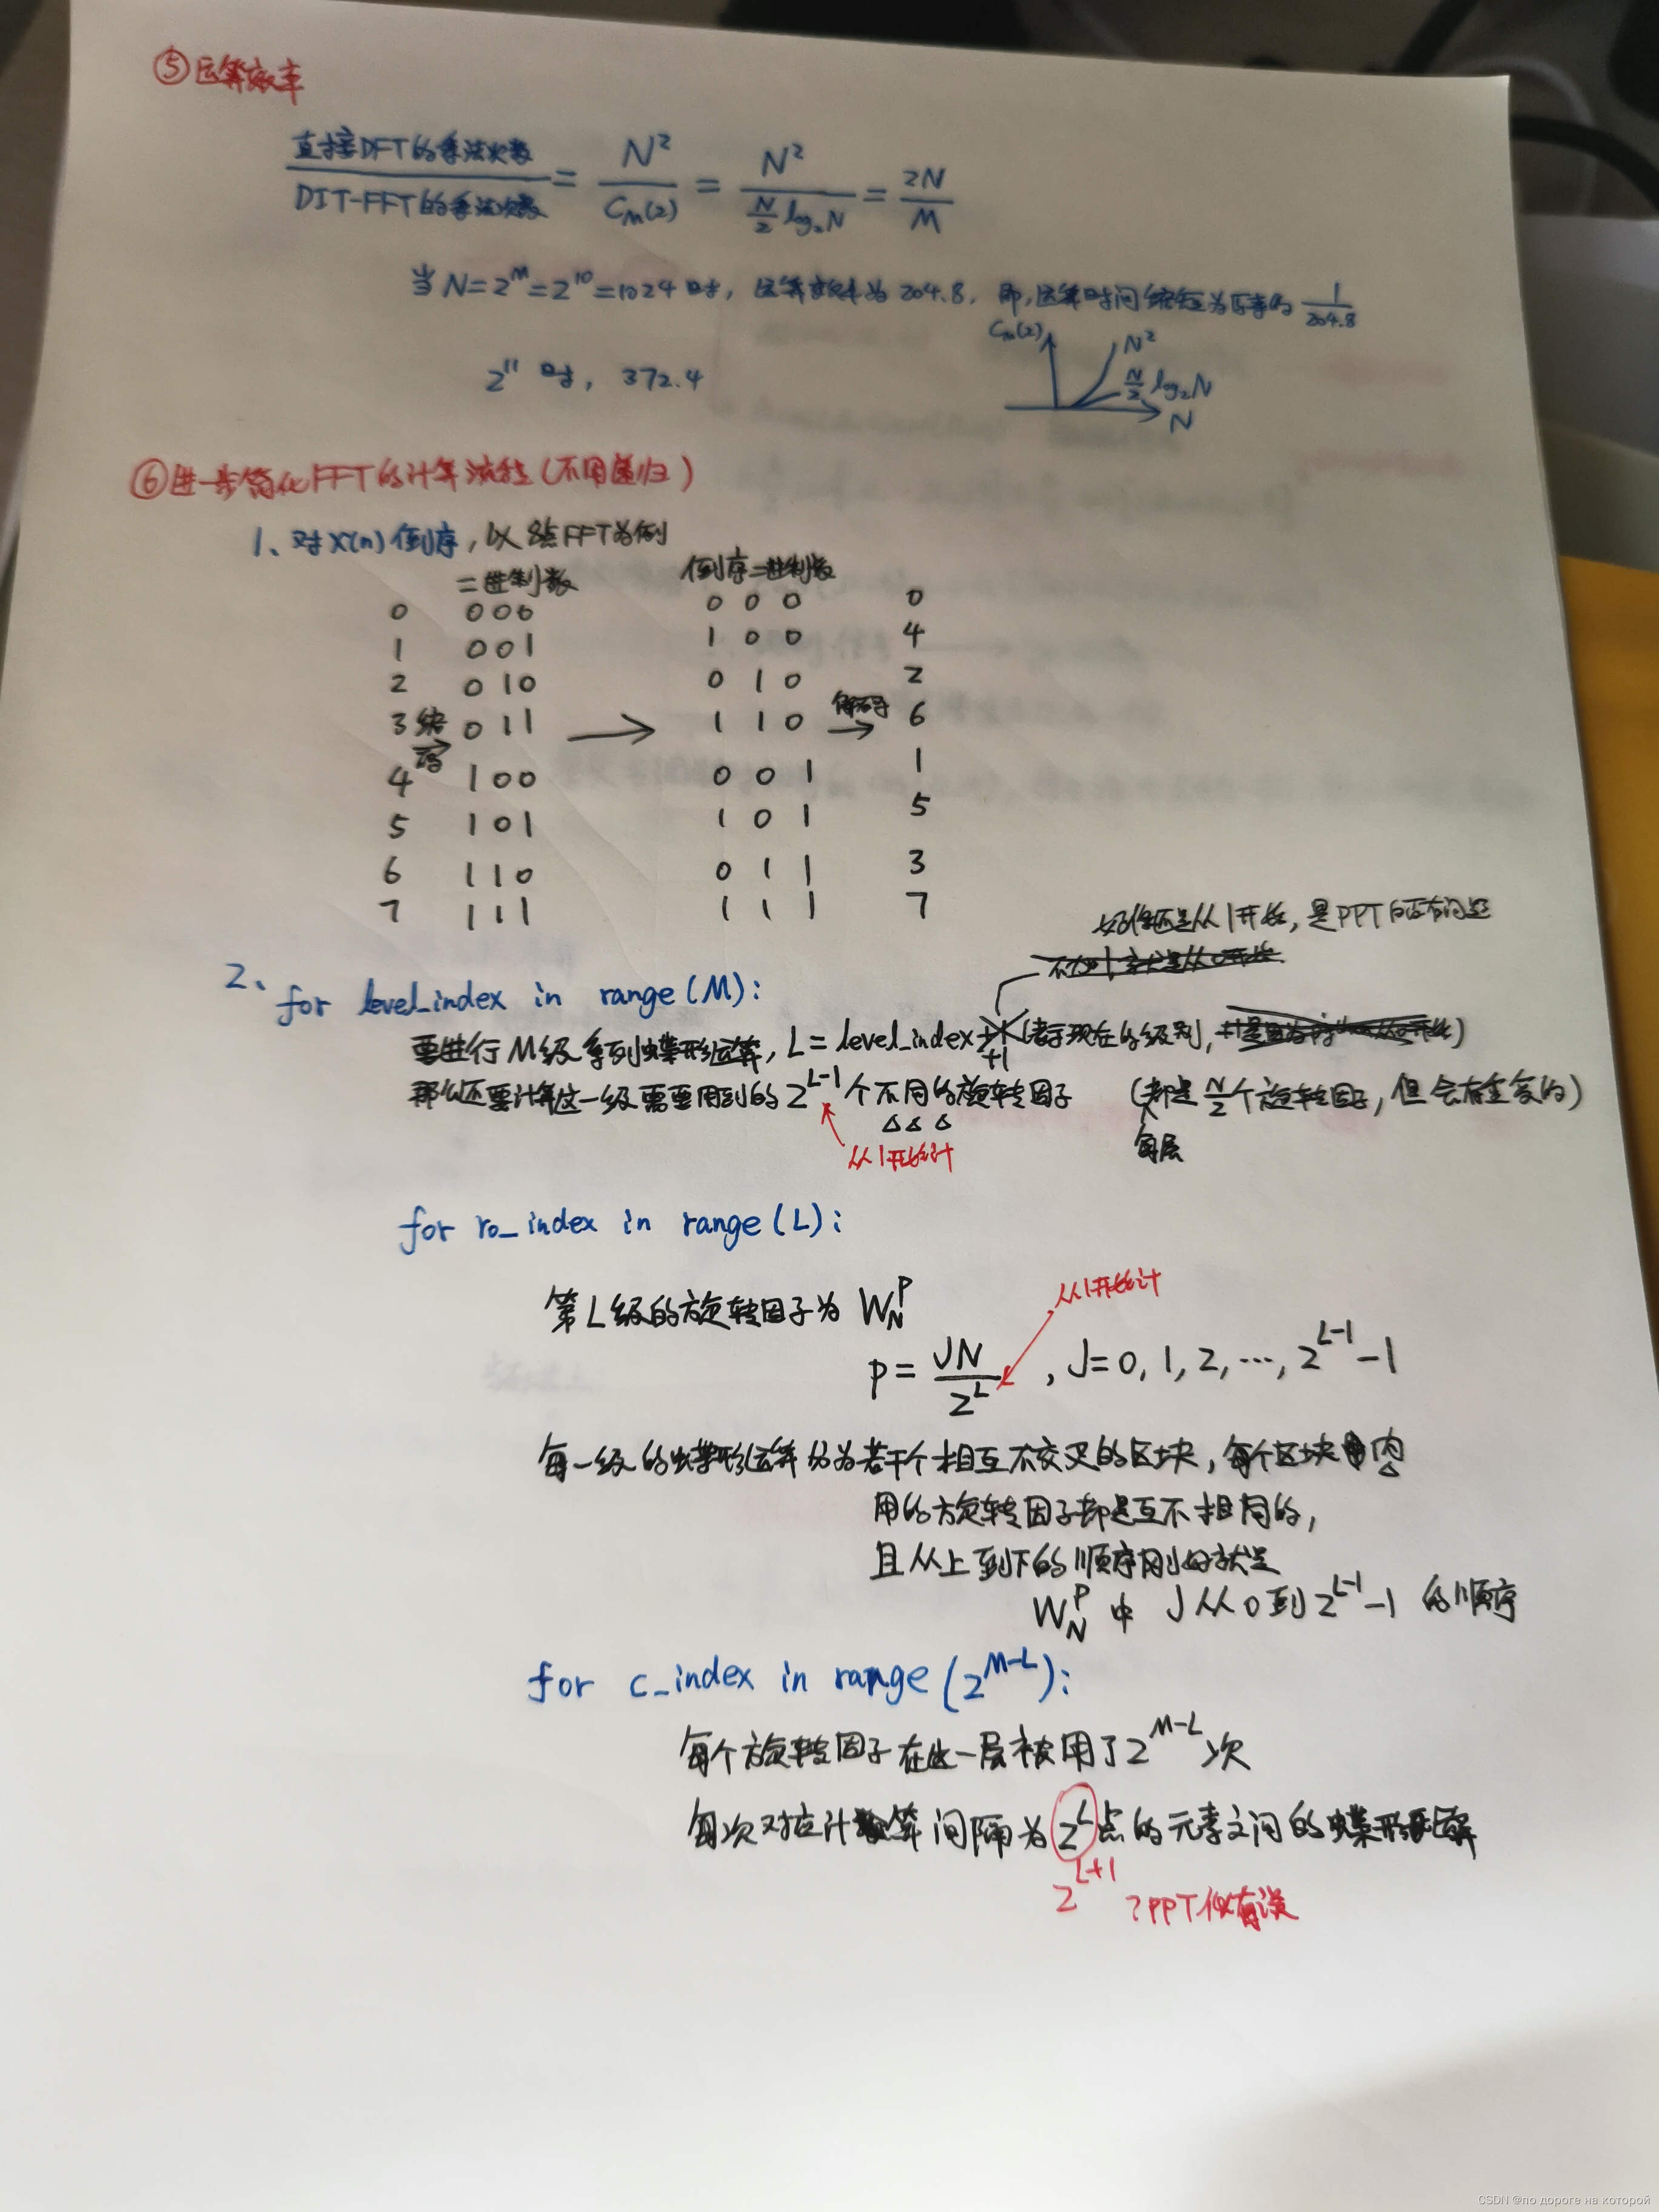 ⑤运算效率
直接DFT的乘法次数 / DIT-FFT的乘法次数 = N² / Cm(2) = N² / (N/2 log₂N) = 2N / M
当N=2^M=2^10=1024时，运算效率为204.8，即，运算时间缩短为原来的 1/204.8
2^11 时，372.4
Cm(2)
N²
N/2 log₂N
N
⑥进一步简化FFT的计算流程(不用递归)
1、对x(n)倒序，以8点FFT为例
二进制数 倒序二进制数
0 000 0 0 0 0
1 001 1 0 0 4
2 010 0 1 0 2
3 编码 011 1 1 0 解码 6
4 100 0 0 1 1
5 101 1 0 1 5
6 110 0 1 1 3
7 111 1 1 1 7
好像还是从1开始，是PPT的有问题
2、for level_index in range(M):
要进行M级系列蝶形运算，L=level_index+1(表示现在的级别，)
那么还要计算这一级需要用到的2^(L-1)个不同的旋转因子 (都是N/2个旋转因子，但会有重复的)
从1开始计
每层
for ro_index in range(L):
第L级的旋转因子为 W_N^P
从1开始计
P = JN / 2^L ，J=0, 1, 2, ⋯, 2^(L-1)-1
每一级的蝶形运算分为若干个相互不交叉的区块，每个区块内
用的旋转因子都是互不相同的，
且从上到下的顺序刚好就是
W_N^P 中 J从0到2^(L-1)-1 的顺序
for c_index in range(2^(M-L)):
每个旋转因子在这一层被用了2^(M-L)次
每次对应计算间隔为2^L点的元素之间的蝶形
2^(L+1) ?PPT似有误
CSDN @по дороге на которой